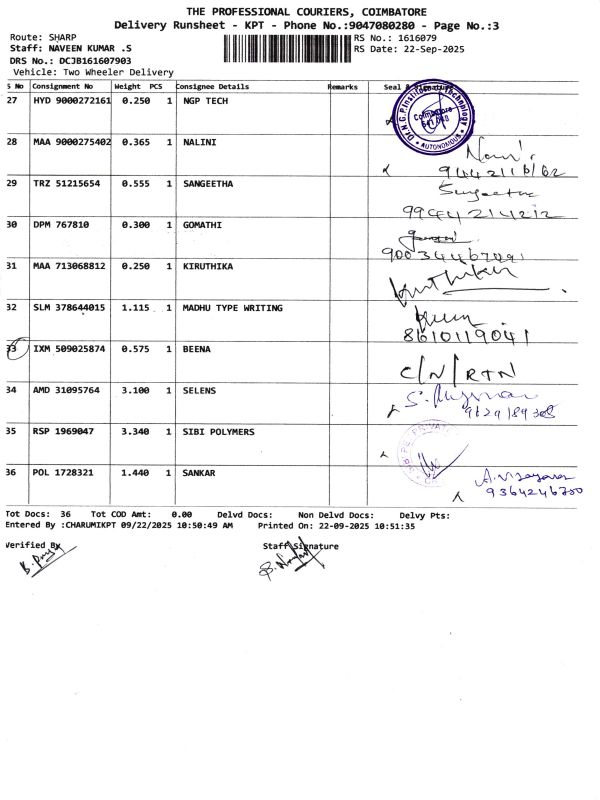 THE PROFESSIONAL COURIERS, COIMBATORE
Delivery Runsheet - KPT - Phone No.:9047080280 - Page No.:3
Route: SHARP RS No.: 1616079
Staff: NAVEEN KUMAR .S RS Date: 22-Sep-2025
DRS No.: DCJB161607903
Vehicle: Two Wheeler Delivery
S No Consignment No Weight PCS Consignee Details Remarks Seal & Signature
27 HYD 9000272161 0.250 1 NGP TECH
Coimbatore
641 048
AUTONOMOUS
28 MAA 9000275402 0.365 1 NALINI
29 TRZ 51215654 0.555 1 SANGEETHA
Sangeetha
30 DPM 767810 0.300 1 GOMATHI
31 MAA 713068812 0.250 1 KIRUTHIKA
32 SLM 378644015 1.115 1 MADHU TYPE WRITING
8610119041
33 IXM 509025874 0.575 1 BEENA
C/N/RTN
34 AMD 31095764 3.100 1 SELENS
35 RSP 1969047 3.340 1 SIBI POLYMERS
36 POL 1728321 1.440 1 SANKAR
9364246700
Tot Docs: 36 Tot COD Amt: 0.00 Delvd Docs: Non Delvd Docs: Delvy Pts:
Entered By :CHARUMIKPT 09/22/2025 10:50:49 AM Printed On: 22-09-2025 10:51:35
Verified By Staff Signature